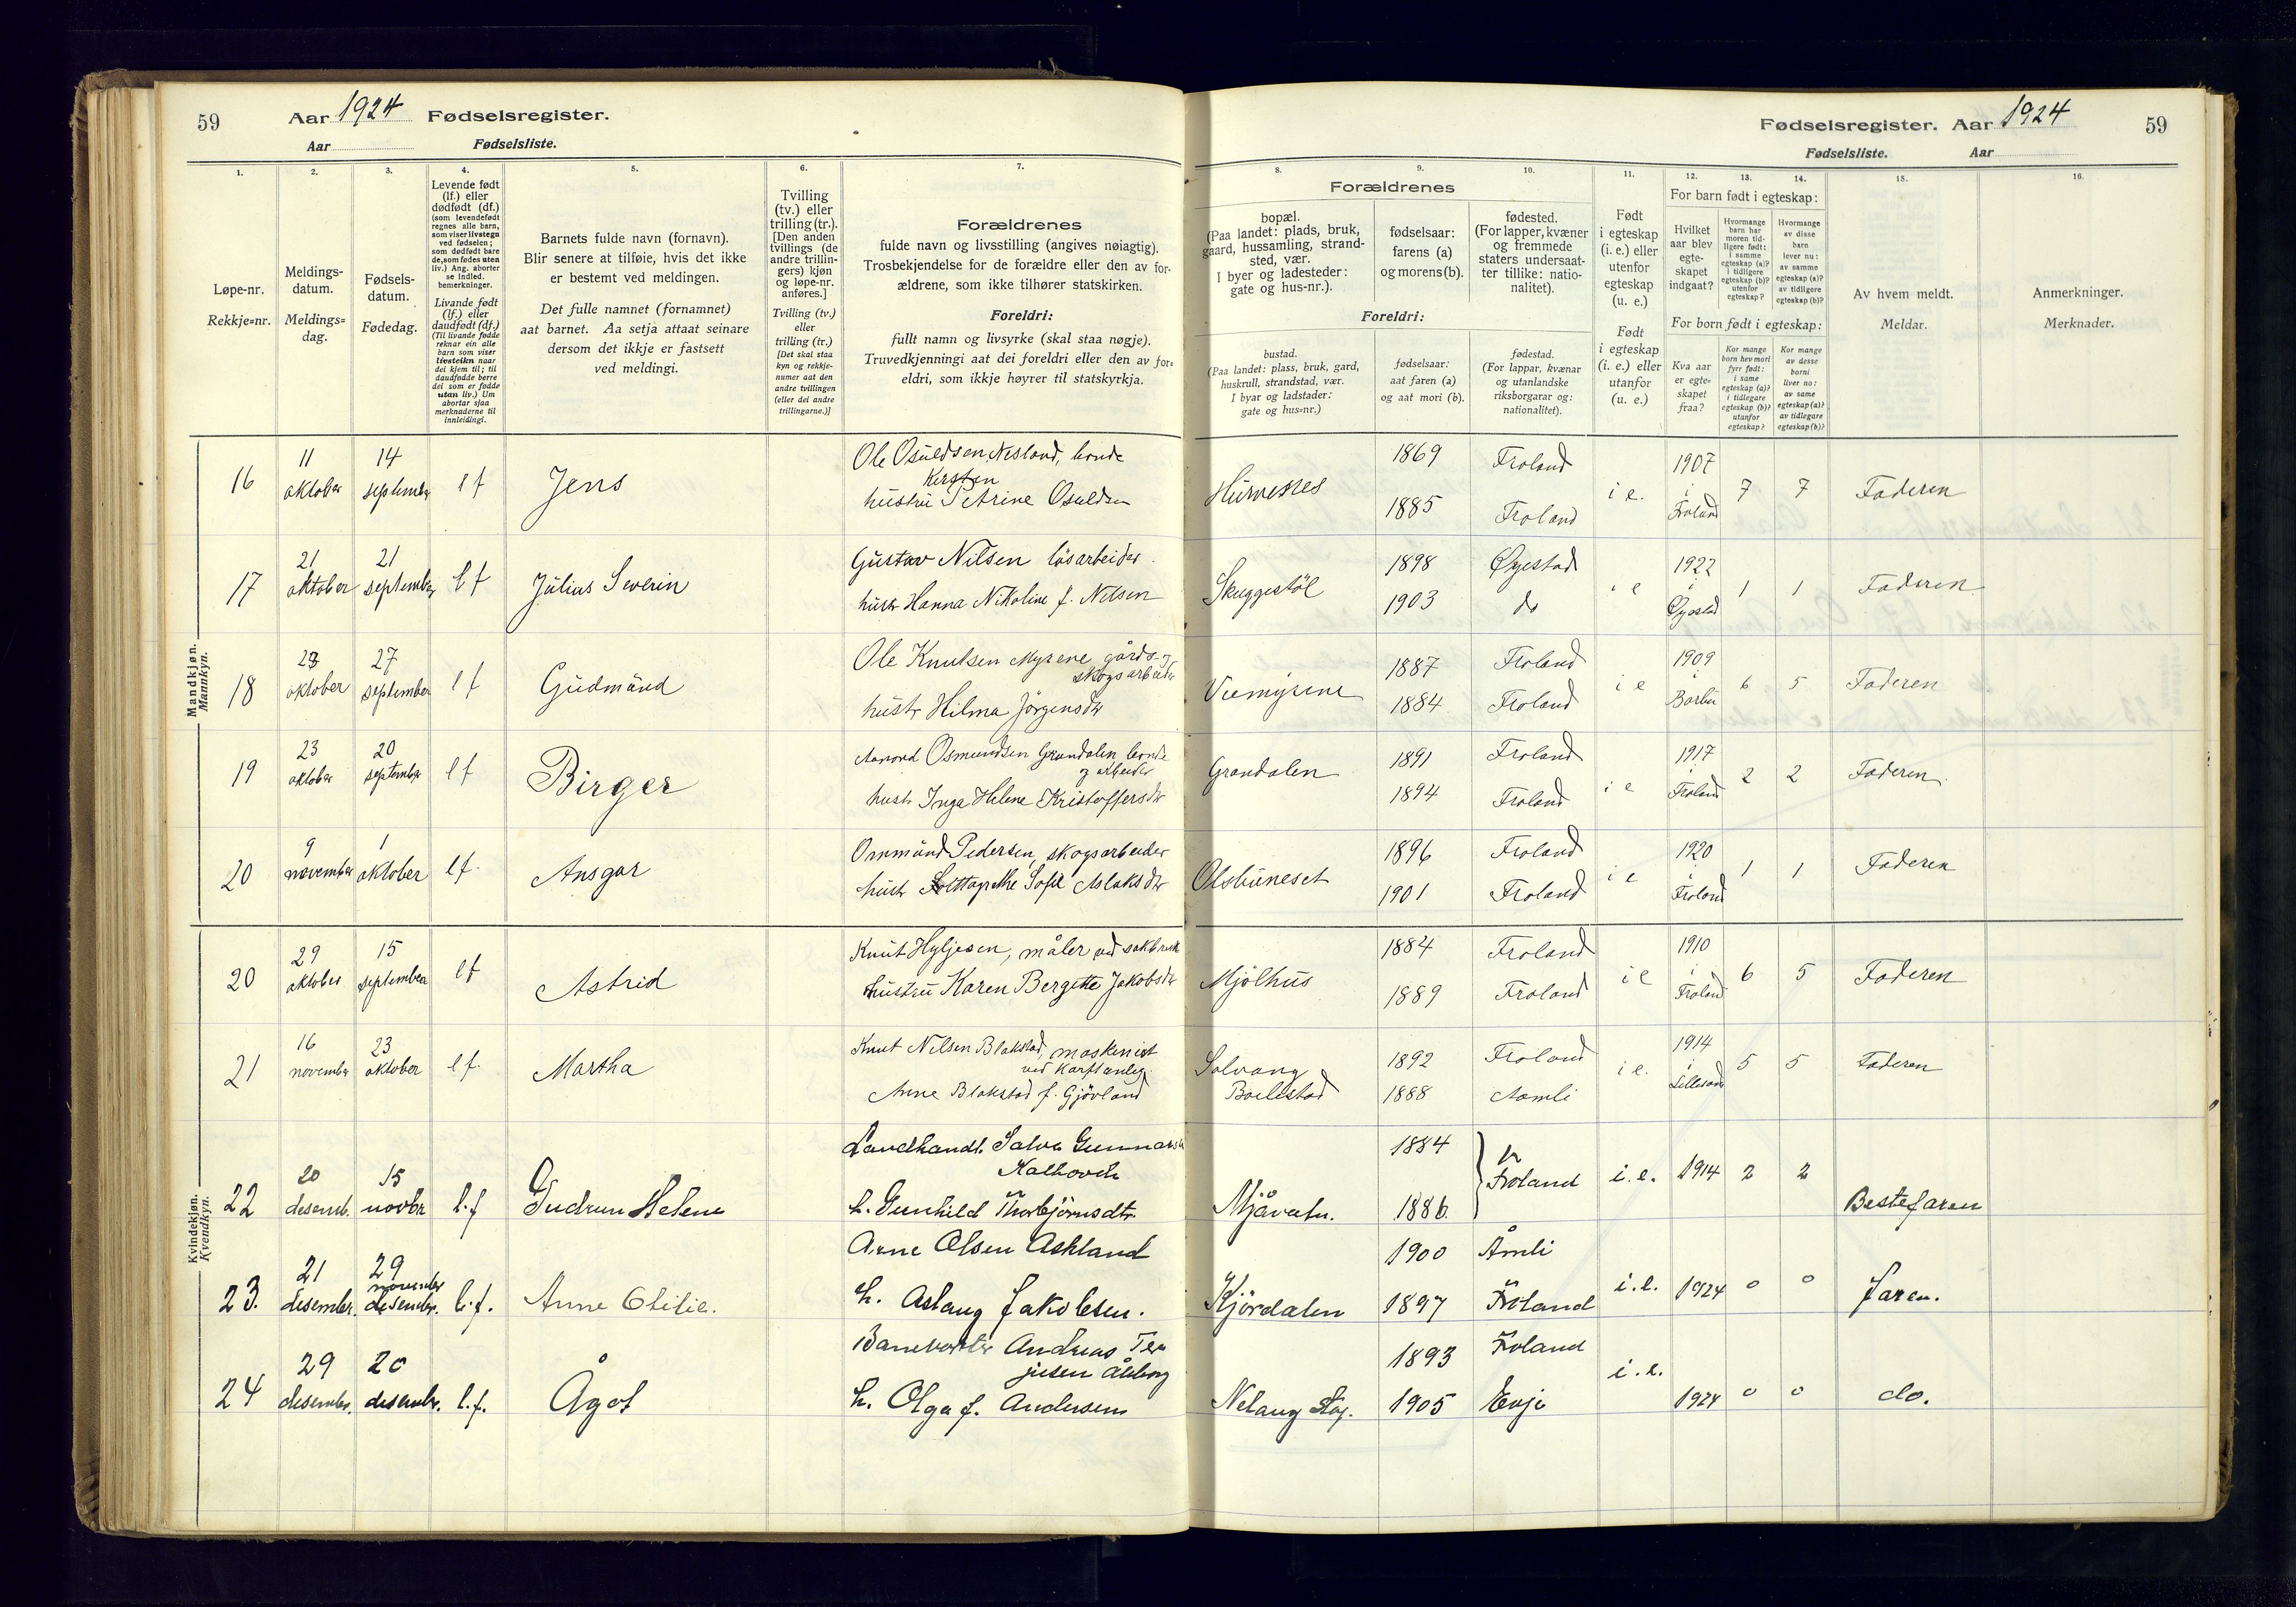 59 Aar 1924 Fødselsregister.
Aar Fødselsliste.
Fødselsregister. Aar 1924 59
Fødselsliste. Aar
1. 2. 3. 4. 5. 6. 7.
Løpe-nr.
Rekkje=nr.
Meldings-
datum.
Meldings=
dag.
Fødsels-
datum.
Fødedag.
Levende født
(lf.) eller
dødfødt (df.)
(som levendefødt
regnes alle barn,
som viser livstegn
ved fødselen;
som dødfødt bare
de, som fødes uten
liv.) Ang. aborter
se indled.
bemerkninger.
Livande født
(lf.) eller
daudfødt (df.)
(Til livande fødde
reknar ein alle
barn som viser
livsteikn naar
dei kjem til; til
daudfødde berre
dei som er fødde
utan liv.) Um
abortar sjaa
merknaderne til
innleidingi.
Barnets fulde navn (fornavn).
Blir senere at tilføie, hvis det ikke
er bestemt ved meldingen.
Det fulle namnet (fornamnet)
aat barnet. Aa setja attaat seinare
dersom det ikkje er fastsett
ved meldingi.
Tvilling
(tv.) eller
trilling (tr.).
[Den anden
tvillings (de
andre trillin-
gers) kjøn
og løpe-nr.
anføres.]
Tvilling (tv.)
eller
trilling (tr.)
[Det skal staa
kyn og rekkje-
numer aat den
andre tvillingen
(eller dei andre
trillingarne.)]
Forældrenes
fulde navn og livsstilling (angives nøiagtig).
Trosbekjendelse for de forældre eller den av for-
ældrene, som ikke tilhører statskirken.
Foreldri:
fullt namn og livsyrke (skal staa nøgje).
Truvedkjenningi aat dei foreldri eller den av for=
eldri, som ikkje høyrer til statskyrkja.
8. 9. 10. 11. 12. 13. 14. 15. 16.
Forældrenes
bopæl.
(Paa landet: plads, bruk,
gaard, hussamling, strand-
sted, vær.
I byer og ladesteder:
gate og hus-nr.).
fødselsaar:
farens (a)
og morens (b).
fødested.
(For lapper, kvæner
og fremmede
staters undersaat-
ter tillike: natio-
nalitet).
Foreldri:
bustad.
(Paa landet: plass, bruk, gard,
huskrull, strandstad, vær.
I byar og ladstader:
gate og hus=nr.)
fødselsaar:
aat faren (a)
og aat mori (b).
fødestad.
(For lappar, kvænar
og utanlandske
riksborgarar og:
nationalitet).
Født
i egteskap
(i. e.) eller
utenfor
egteskap
(u. e.)
Født
i egteskap
(i. e.) eller
utanfor
(u. e.)
For barn født i egteskap:
Hvilket
aar blev
egte-
skapet
indgaat?
Hvormange
barn har
moren tid-
ligere født:
i samme
egteskap (a)?
i tidligere
egteskap (b)?
utenfor
egteskap?
Hvormange
av disse
barn
lever nu:
av samme
egteskap (a)?
av tidligere
egteskap (b)?
For born født i egteskap:
Kva aar
er egte=
skapet
fraa?
Kor mange
born hev mori
fyrr født:
i same
egteskap (a)?
i tidlegare
egteskap (b)?
utanfor
egteskap?
Kor mange
av desse
borni
liver no:
av same
egteskap (a)?
av tidlegare
egteskap (b)?
Av hvem meldt.
Meldar.
Anmerkninger.
Merknader.
Mandkjøn.
Mannkyn.
16 11 oktober 14 september lf Jens
Ole Osuldsen Nesland, bonde
Kirsten
hustru Petrine Osuldsen
Hurvesnes 1869 1885 Froland Froland i e. 1907 i Froland 7 7 Faderen
17 21 oktober 21 september lf Julius Severin
Gustav Nilsen løsarbeider
hustr Hanna Nikoline f. Nilsen
Skuggestøl 1898 1903 Øyestad do i e 1922 i Øyestad 1 1 Faderen
18 23 oktober 27 september lf Gudmund
Ole Knutsen Myrene gårds- og
skogsarbeider
hustr Hilma Jörgensdtr
Vemyrene 1887 1884 Froland Froland i e 1909 i Barbu 6 5 Faderen
19 23 oktober 20 september lf Birger
Aanond Osmundsen Grundalen bonde
og arbeider
hustr Inga Helene Kristoffersdtr
Grandalen 1891 1894 Froland Froland i e 1917 i Froland 2 2 Faderen
20 9 november 1 oktober lf. Ansgar
Ommund Pedersen, skogsarbeider
hustr Sofie Aslaksdtr
Olsbuneset 1896 1901 Froland Froland i e 1920 i Froland 1 1 Faderen
Kvindekjøn.
Kvendkyn.
20 29 oktober 15 september lf Astrid
Knut Hyljesen, måler ved sakbruk
hustru Karen Bergitte Jakobsdtr
Mjölhus 1884 1889 Froland Froland i e 1910 i Froland 6 5 Faderen
21 16 november 23 oktober lf. Martha
Knut Nilsen Blakstad, maskenist
ved Karftanleg.
Anne Blakstad f. Gjövland
Solvang
Boilestad 1892 1888 Froland Aamli i e. 1914 i Lillesand 5 5 Faderen
22 20 desemb. 15 novbr l.f Gudrun Helene
Landhandl. Salve Gunnarsen
Kalhovde
h. Gunhild Thorbjörnsdtr.
Mjåvatn. 1884 1886. Froland i.e. 1914 2 2 Bestefaren
23. 21 desember. 29 november desember. l.f. Anne Otilie.
Arne Olsen Askland
h. Aslaug Jakobsen.
Kjördalen 1900 1897 Åmli Froland i.e. 1924 0 0 faren.
24 29 desember. 20 desembr. l.f. Ågot
Banevokter Andreas Ter
jusen Ålborg
h. Olga f. Andersen
Nelaug Stasj. 1893 1905 Froland Evje i.e. 1924 0 0 do.